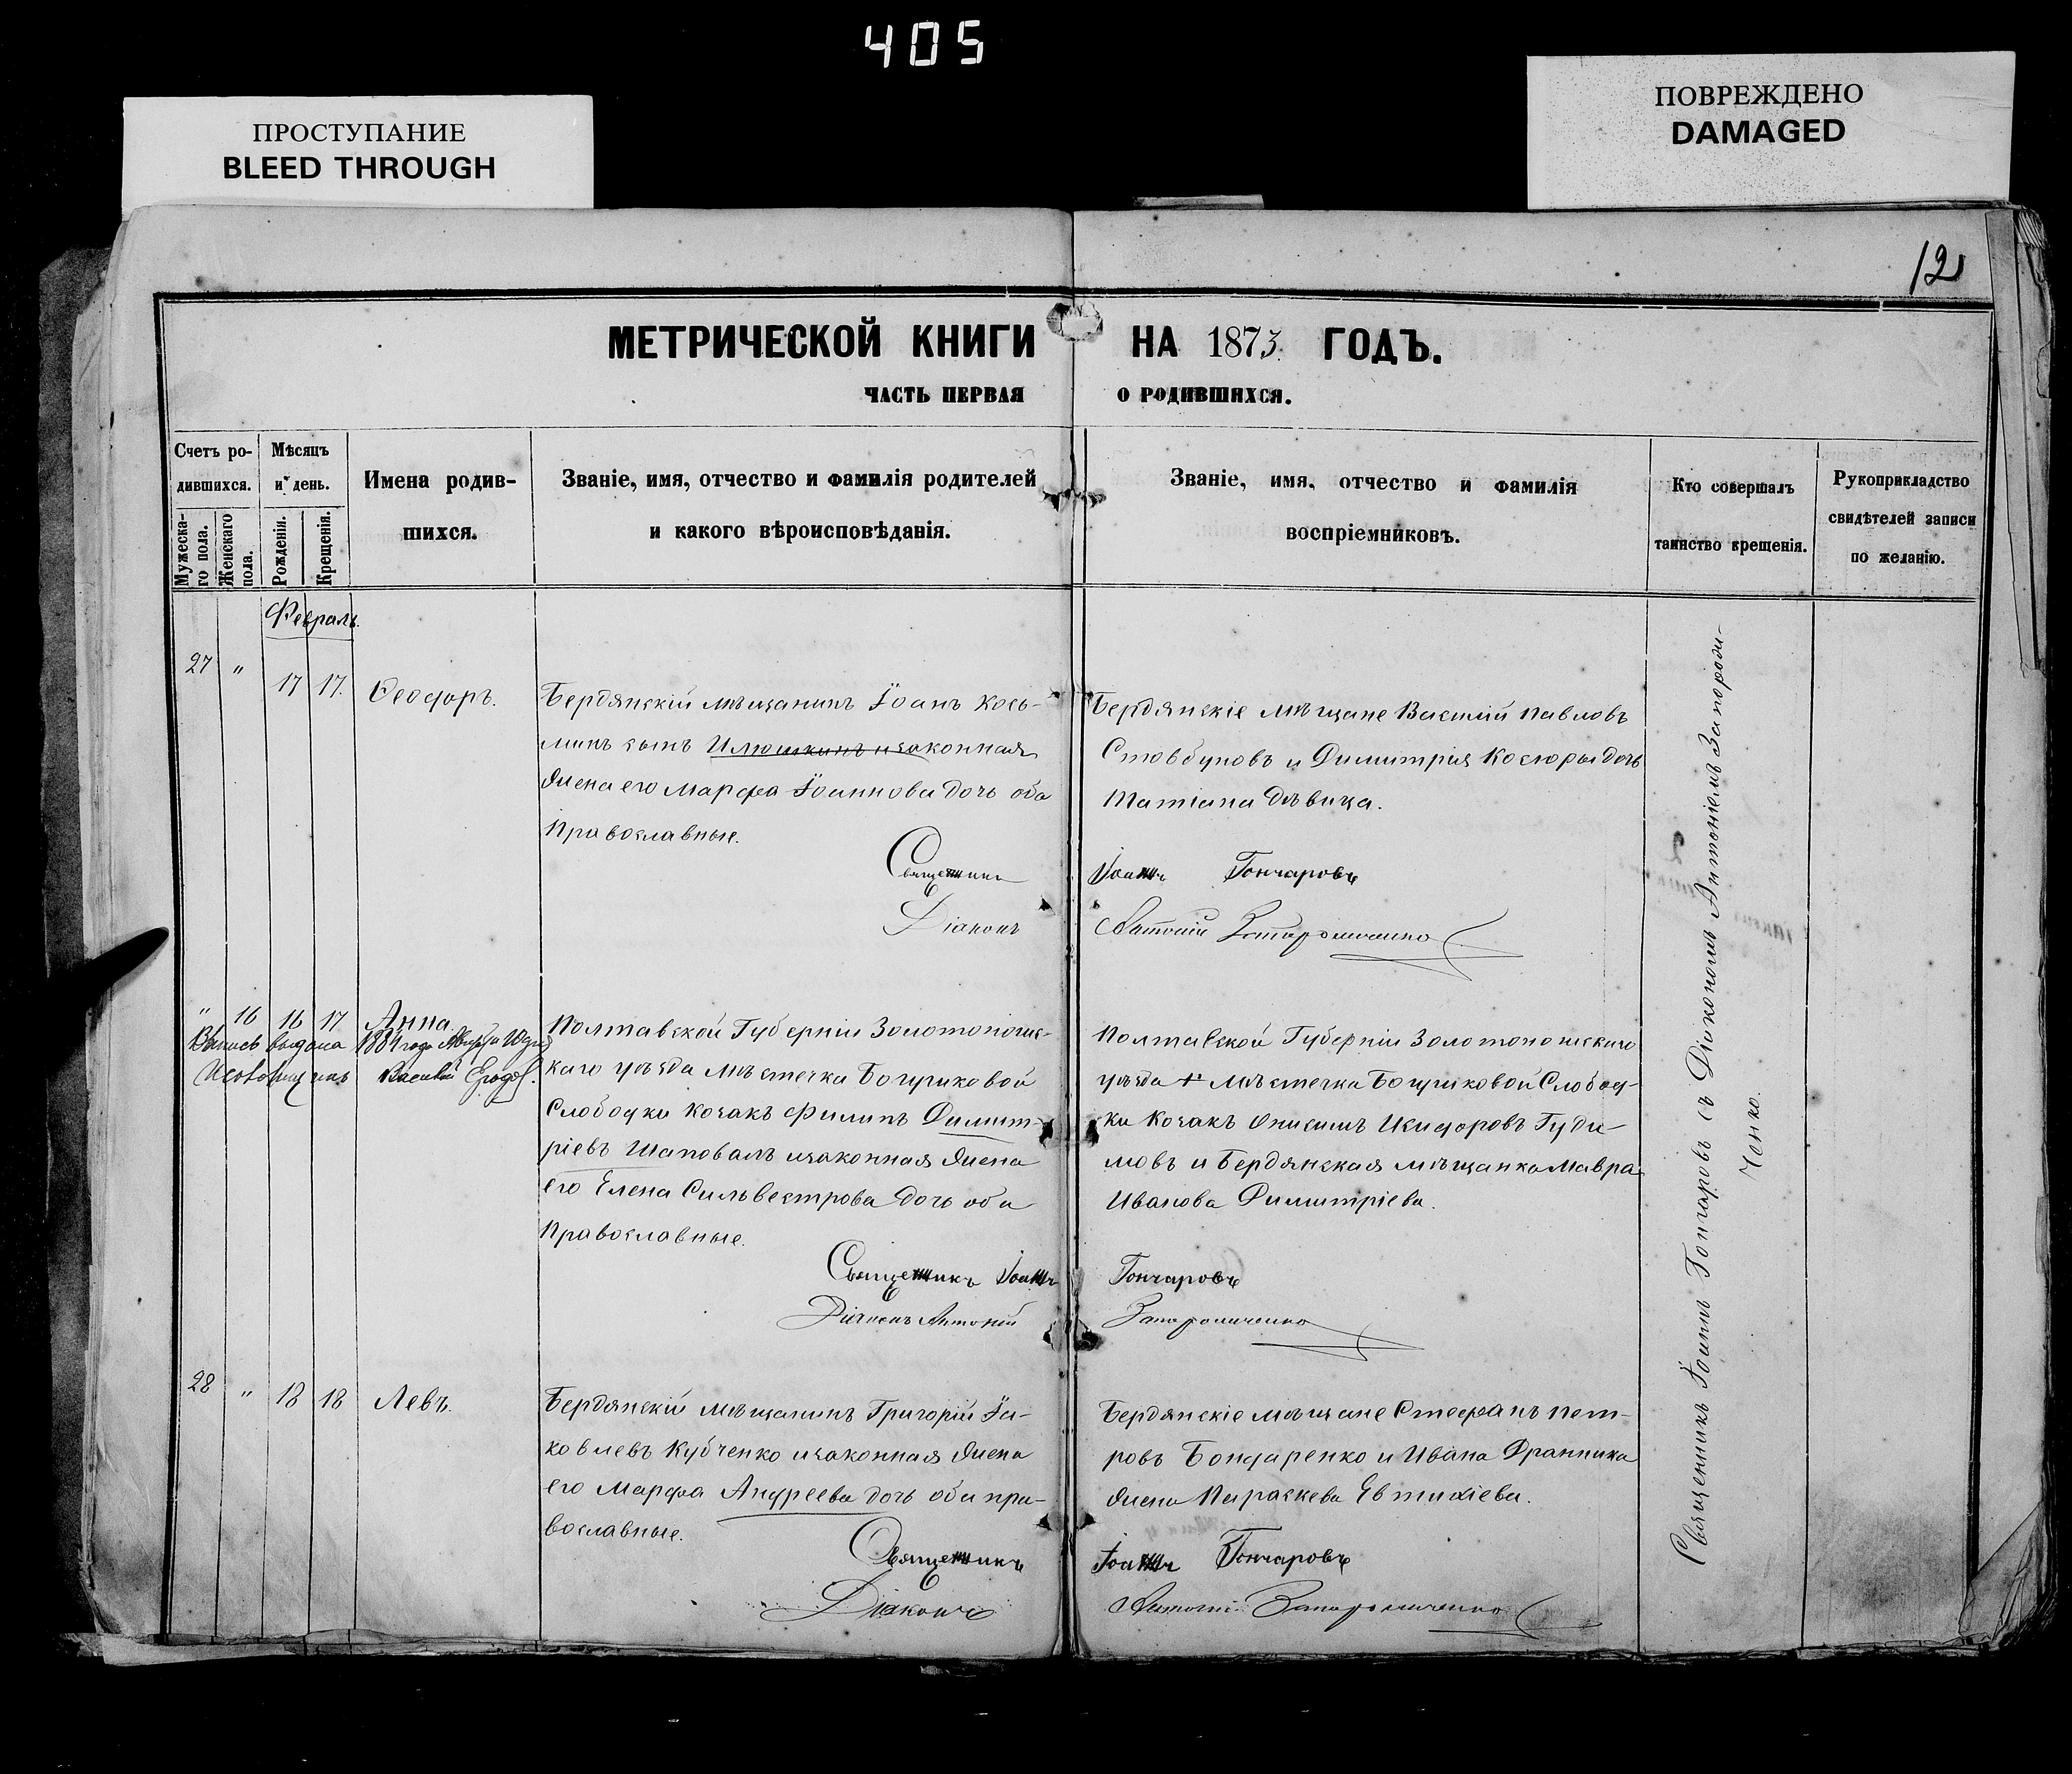 405
ПРОСТУПАНИЕ
BLEED THROUGH
ПОВРЕЖДЕНО
DAMAGED
12
МЕТРИЧЕСКОЙ КНИГИ НА 1873 ГОДЪ.
ЧАСТЬ ПЕРВАЯ О РОДИВШИХСЯ.
Счетъ ро-
дившихся.
Мужеска-
го пола.
Женскаго
пола.
Мѣсяцъ
и день.
Рожденія.
Крещенія.
Имена родив-
шихся.
Званіе, имя, отчество и фамилія родителей
и какого вѣроисповѣданія.
Званіе, имя, отчество и фамилія
воспріемниковъ.
Кто совершалъ
таинство крещенія.
Рукоприкладство
свидѣтелей записи
по желанію.
Февраль.
27 " 17 17. Ѳеодоръ.
Бердянскій мѣщанинъ Іоанъ Козь-
минъ сынъ Илюшкинъ и законная
жена его Марфа Іоаннова дочь оба
Православные.
Священникъ
Діаконъ
Бердянскіе мѣщане Василій Павловъ
Стовбуновъ и Димитрія Косюры дочь
Татіана дѣвица.
Іоаннъ Гончаровъ
Антоній Запорожченко
" 16 16 17 Анна.
Выпись выдана 1884 года
Василій
Полтавской Губерніи Золотонош-
каго уѣзда мѣстечка Богушковой
Слободки козакъ Филипъ Димит-
ріевъ Шаповалъ и законная жена
его Елена Сильвестрова дочь оба
Православные.
Священникъ Іоаннъ
Діаконъ Антоній
Полтавской Губерніи Золотоношскаго
уѣзда мѣстечка Богушковой Слобод-
ки Козакъ Онисимъ Исидоровъ Гуди-
мовъ и Бердянская мѣщанка Мавра
Иванова Димитріева.
Гончаровъ
Запорожченко
28 " 18 18 Левъ.
Бердянскій мѣщанинъ Григорій Іа-
ковлевъ Кубченко и законная жена
его Марфа Андреева дочь оба пра-
вославные.
Священникъ
Діаконъ
Бердянскіе мѣщане Стефанъ Пет-
ровъ Бондаренко и Ивана Дранника
жена Параскева Евтихіева.
Іоаннъ Гончаровъ
Антоній Запорожченко
Священникъ Іоаннъ Гончаровъ съ Діакономъ Антоніемъ Запорож-
ченко.